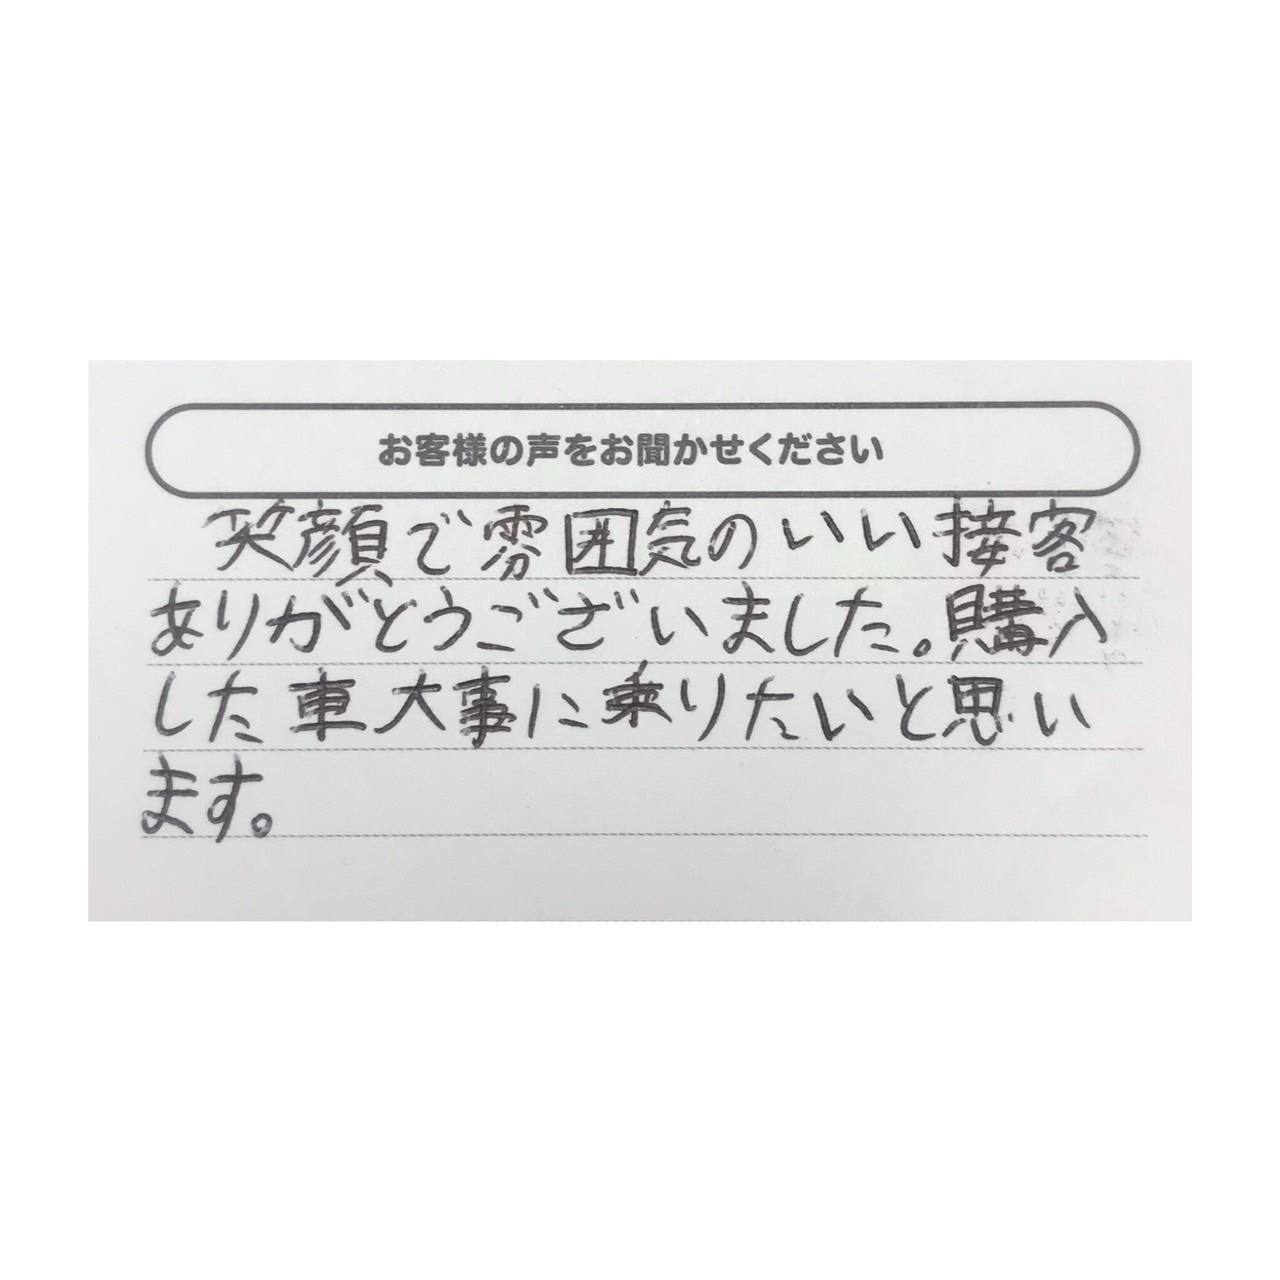 お客様の声をお聞かせください
笑顔で雰囲気のいい接客
ありがとうございました。購入
した車大事に乗りたいと思い
ます。